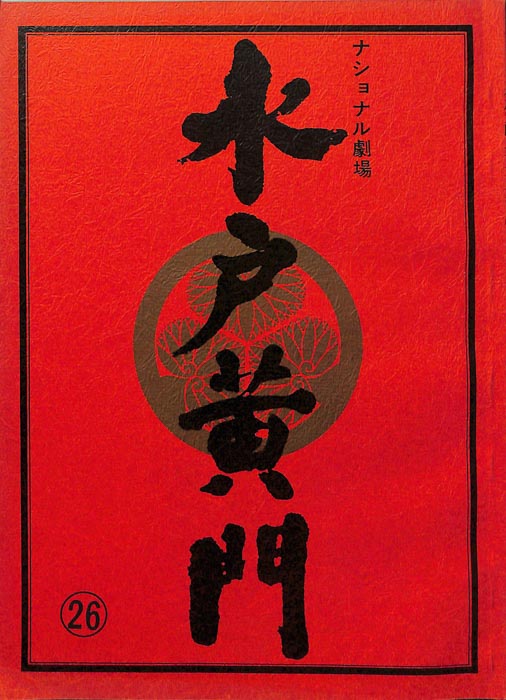 ナショナル劇場
水戸黄門
㉖